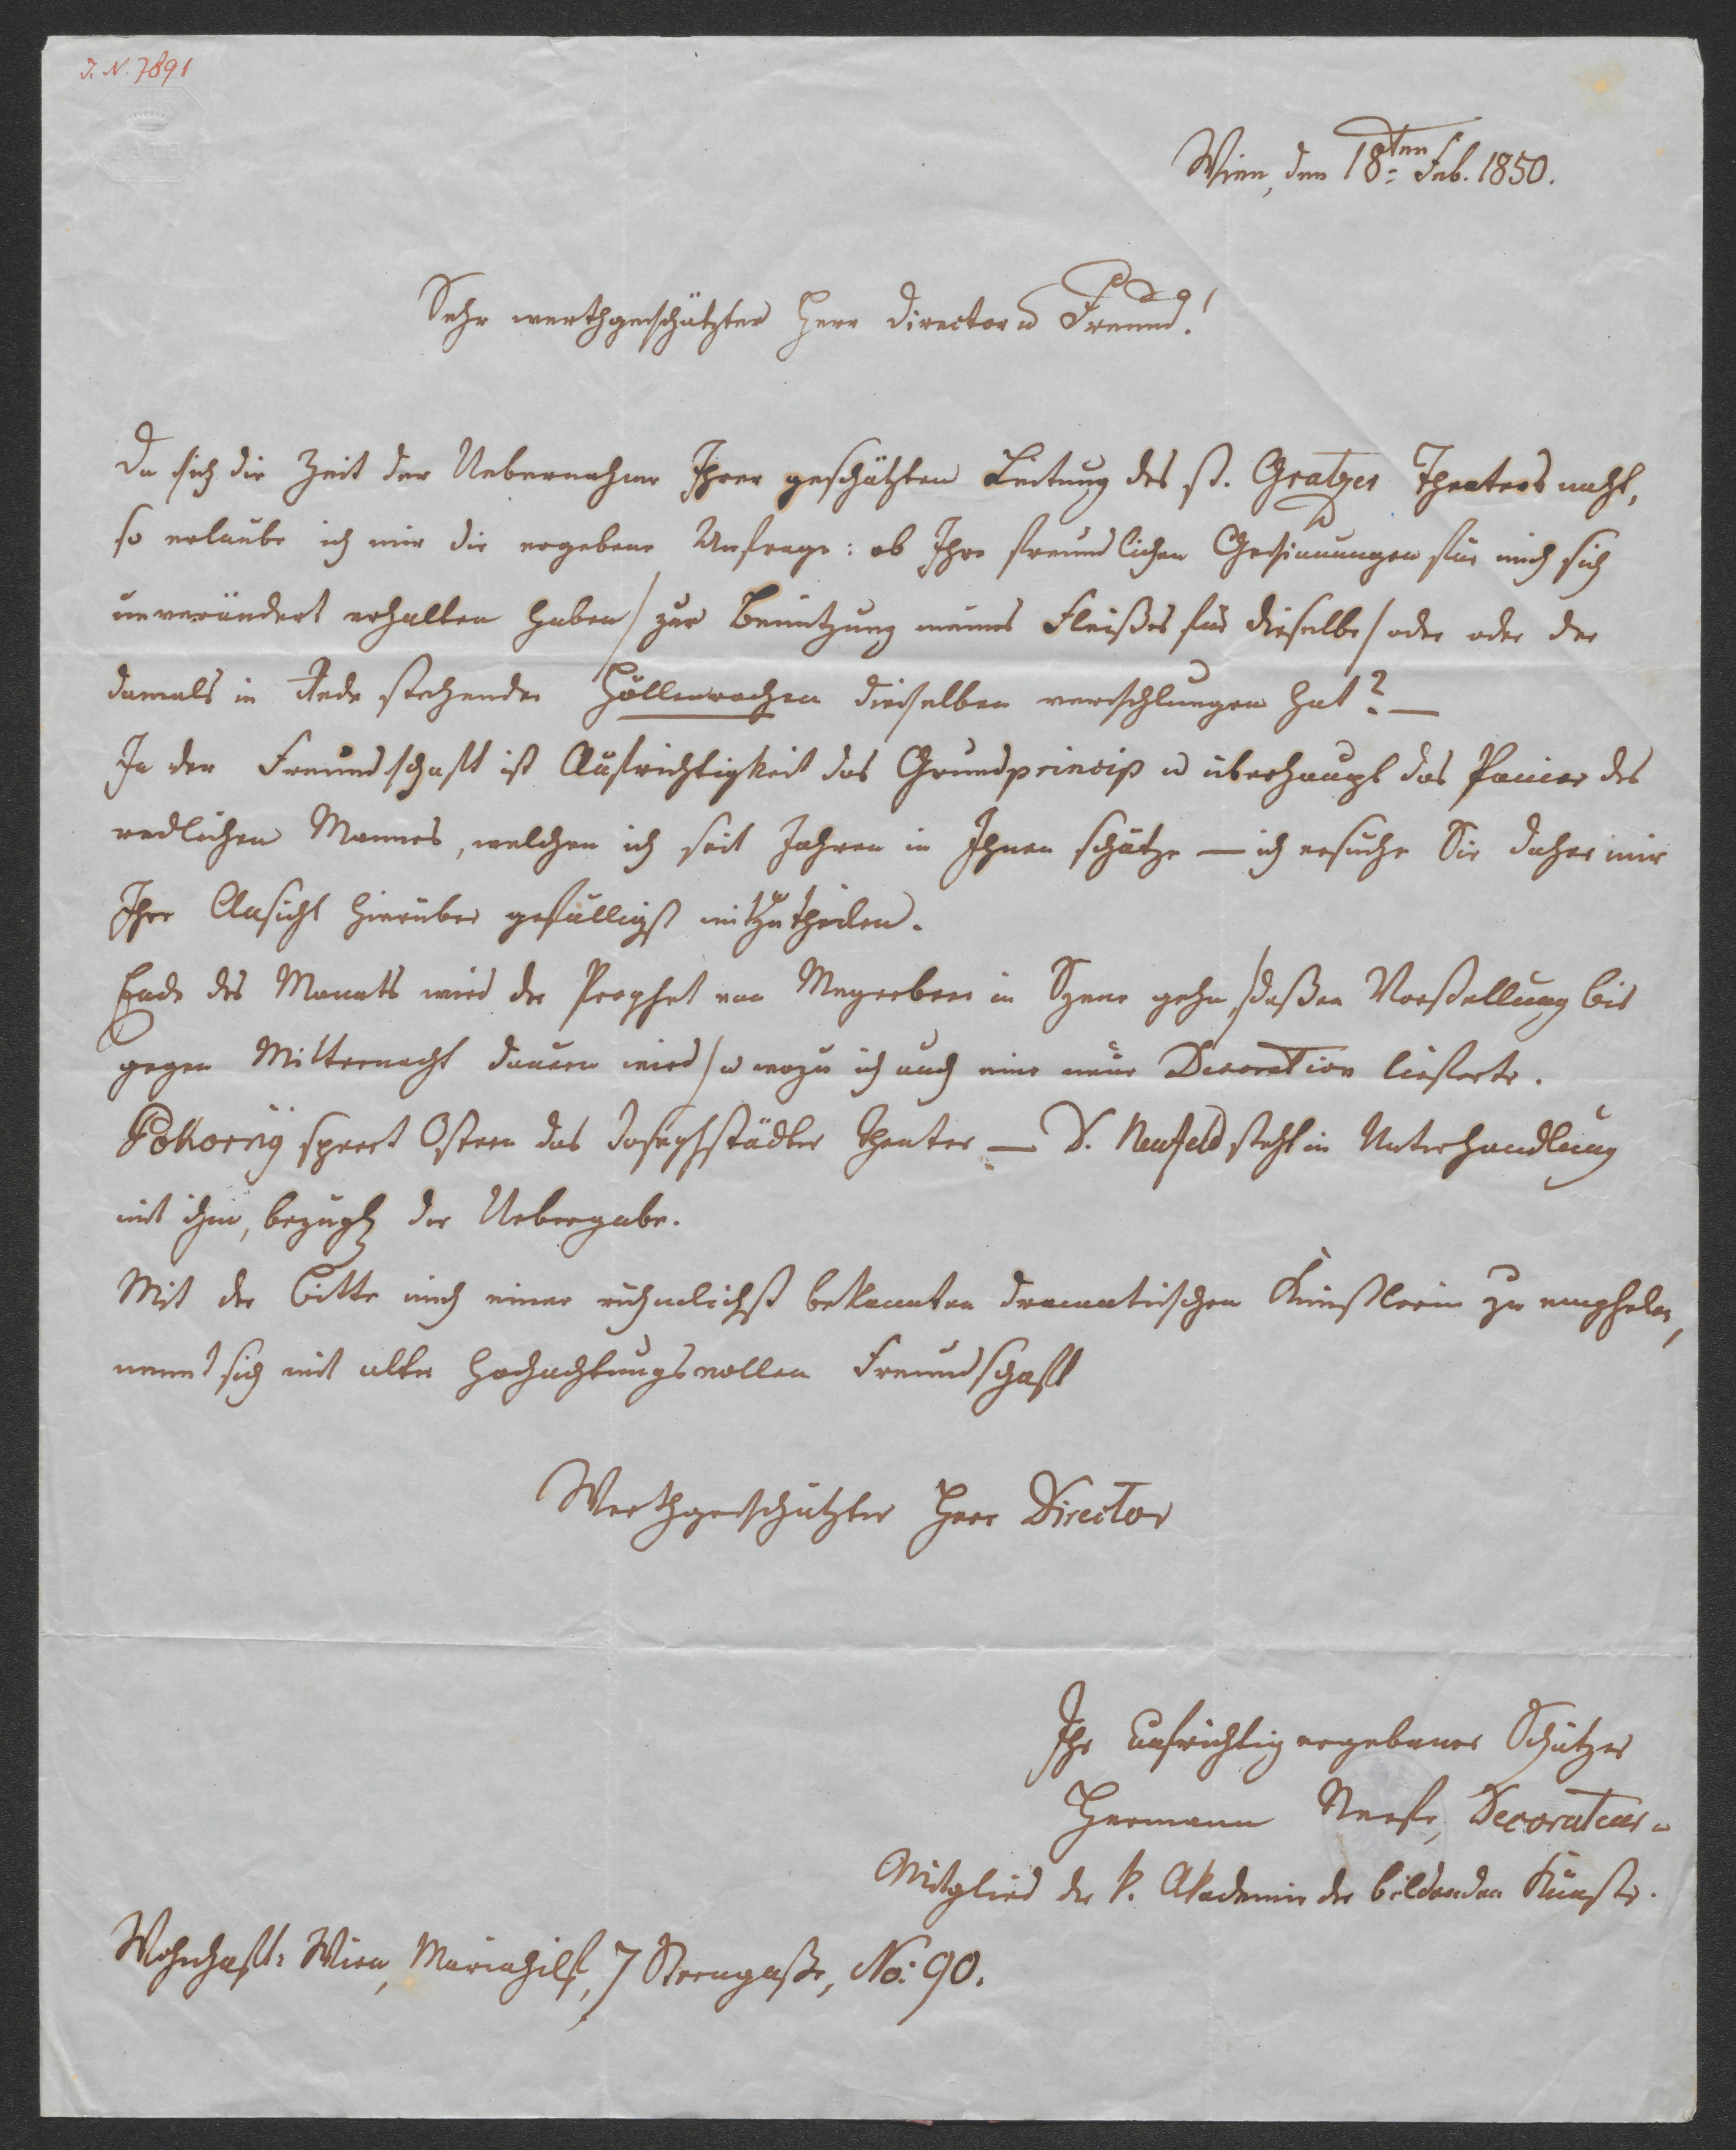 J. N. 7891
Wien, den 18ten Feb. 1850.
Sehr werthgeschätzter Herr Director u Freund!
Da sich die Zeit der Uebernahme Ihrer geschätzten Leitung des st. Gratzer Theaters naht,
so erlaube ich mir die ergebene Anfrage: ob Ihre freundlichen Gesinnungen für mich sich
unverändert erhalten haben / zur Benützung meines Fleißes für dieselbe / oder oder der
damals in Rede stehende Höllenrachen dieselben verschlungen hat? —
In der Freundschaft ist Aufrichtigkeit das Grundprincip u überhaupt das Panier des
redlichen Mannes, welchen ich seit Jahren in Ihnen schätze — ich ersuche Sie daher mir
Ihre Ansicht hierüber gefälligst mitzutheilen.
Ende des Monats wird der Prophet von Meyerbeer in Szene gehn, /deßen Vorstellung bis
gegen Mitternacht dauern wird / u wozu ich auch eine neue Decoration lieferte.
Pokorny sperrt Ostern das Josephstädter Theater — D. Neufeld steht in Unterhandlung
mit ihm, bezüglich der Uebergabe.
Mit der Bitte mich einer rühmlichst bekannten dramatischen Künstlerin zu empfehlen,
nennt sich mit alter hochachtungsvollen Freundschaft
Werthgeschätzter Herr Director
Ihr aufrichtig ergebener Schätzer
Hermann Neefe, Decorateur u
Mitglied der k. Akademie der bildenden Künste.
Wohnhaft: Wien, Mariahilf, 7 Sterngaße, No: 90.